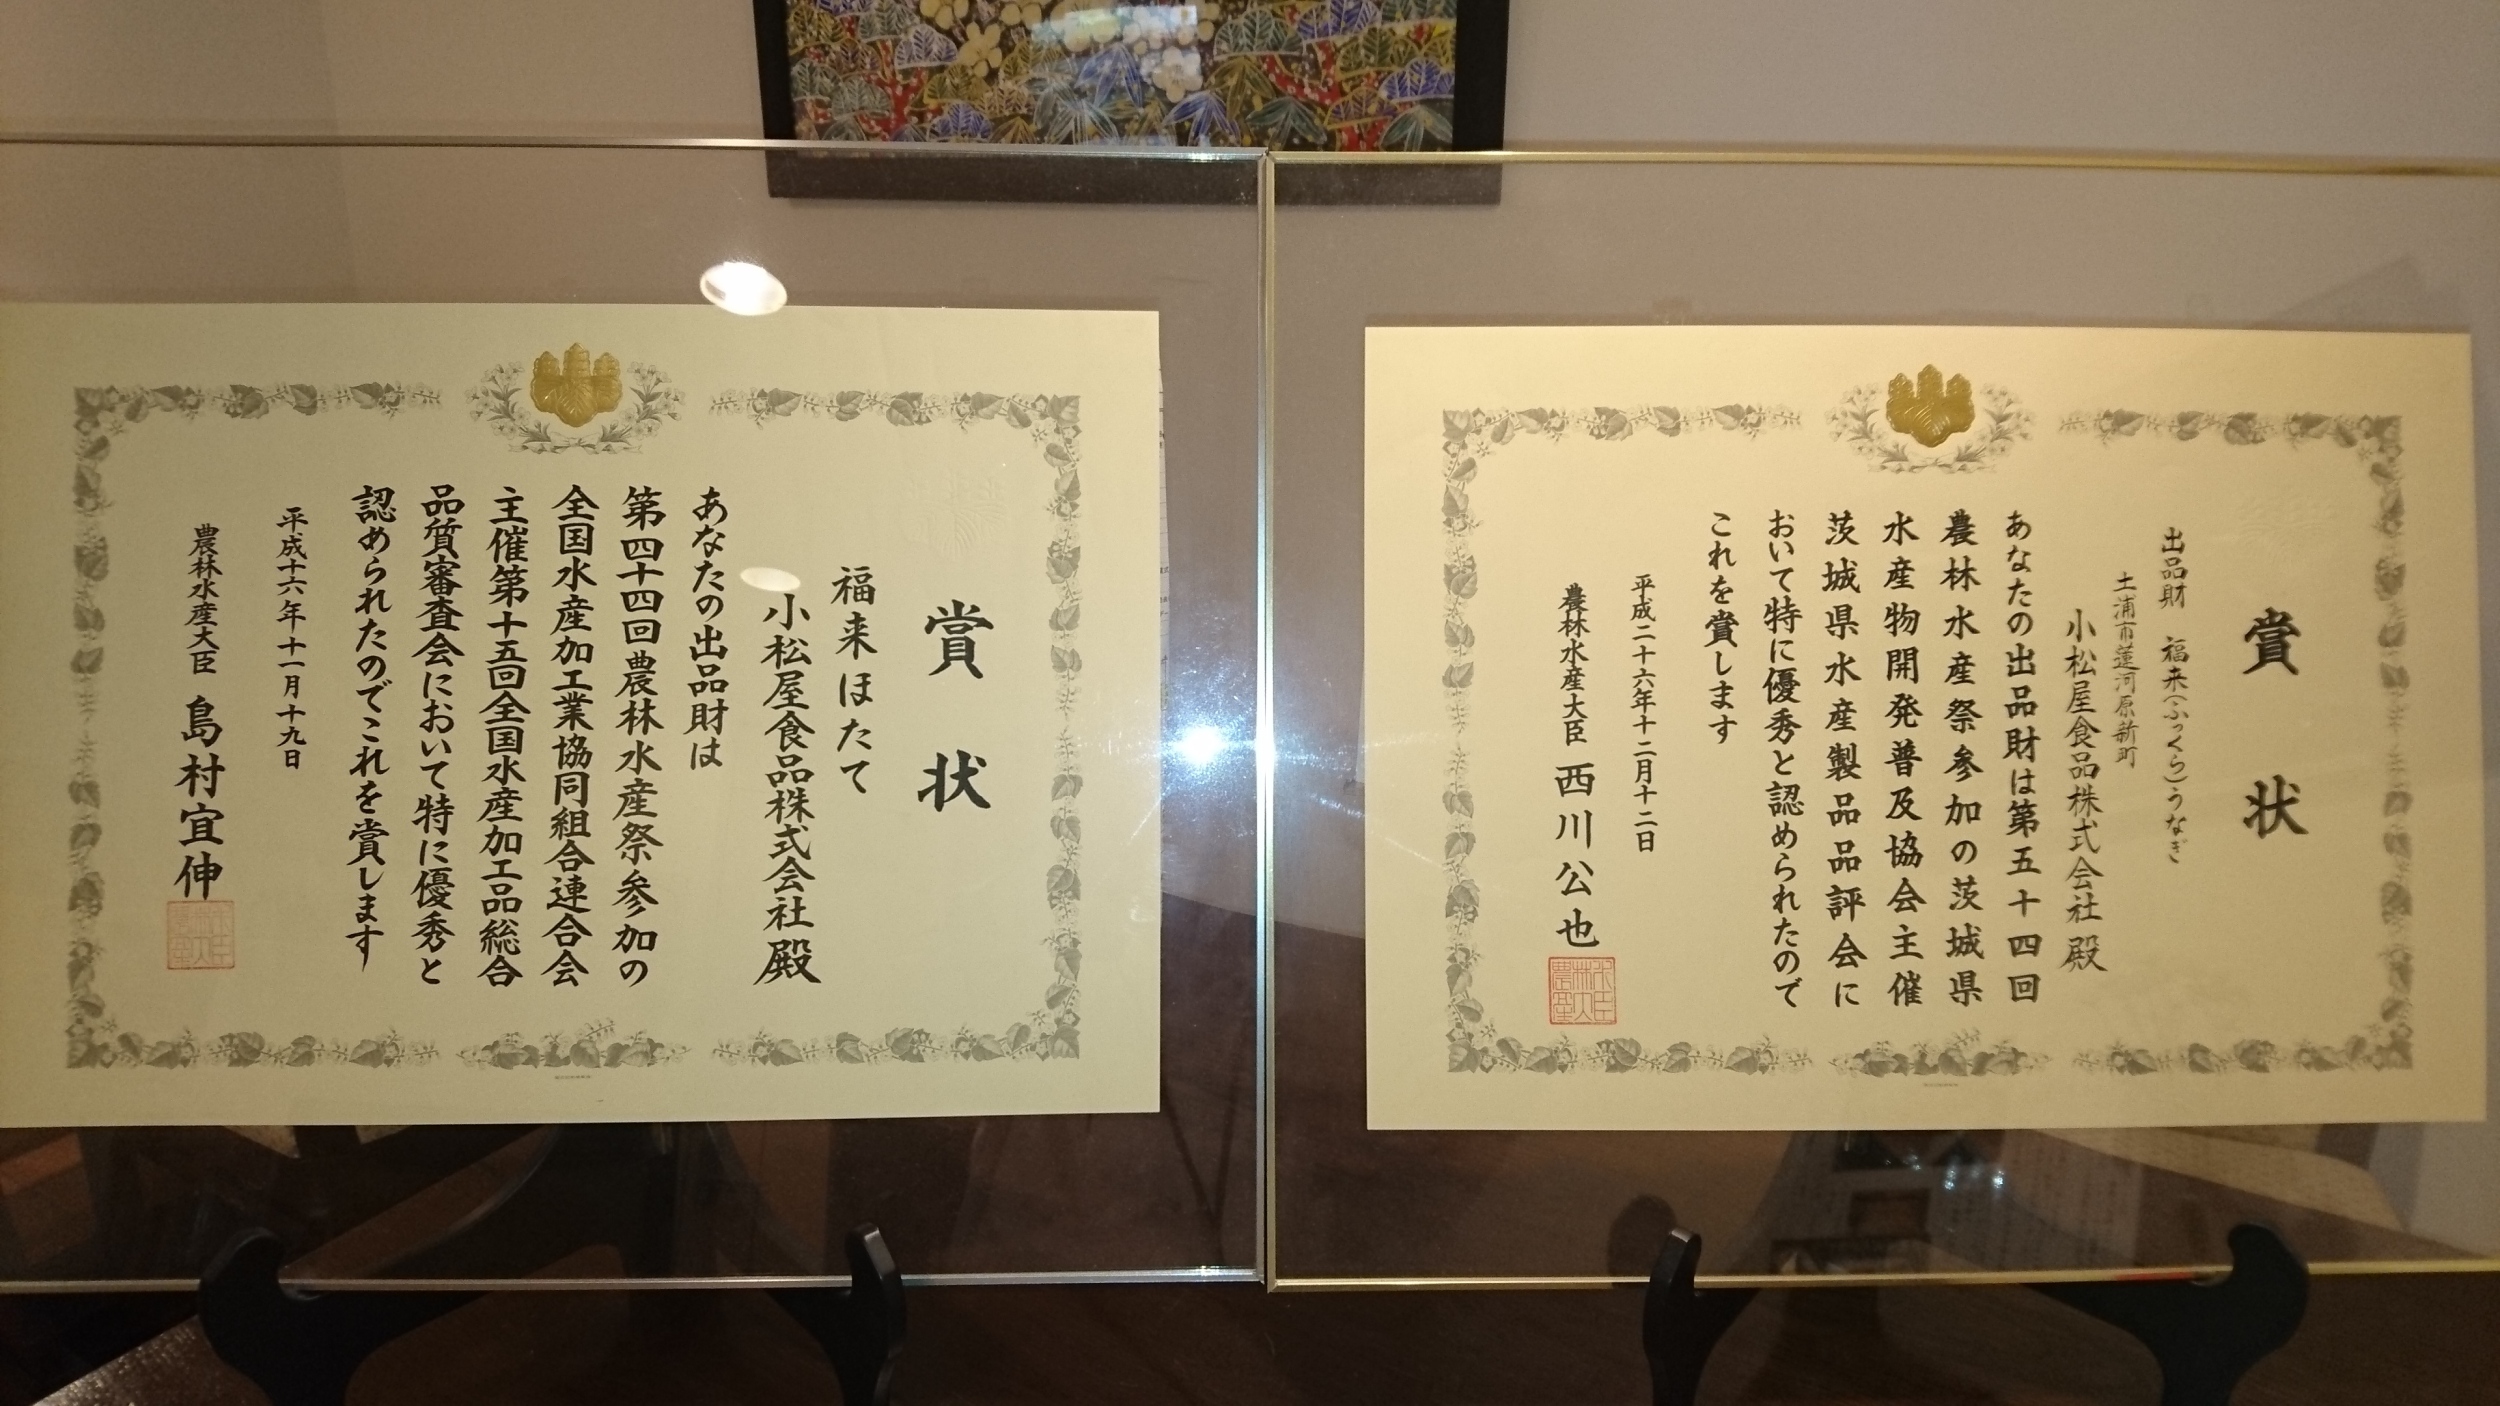 賞状
福来ほたて
小松屋食品株式会社殿
あなたの出品財は
第四十四回農林水産祭参加の
全国水産加工業協同組合連合会
主催第十五回全国水産加工品総合
品質審査会において特に優秀と
認められたのでこれを賞します
平成十六年十一月十九日
農林水産大臣 島村宜伸
賞状
出品財 福来(ふっくら)うなぎ
土浦市蓮河原新町
小松屋食品株式会社殿
あなたの出品財は第五十四回
農林水産祭参加の茨城県
水産物開発普及協会主催
茨城県水産製品品評会に
おいて特に優秀と認められたので
これを賞します
平成二十六年十二月十二日
農林水産大臣 西川公也